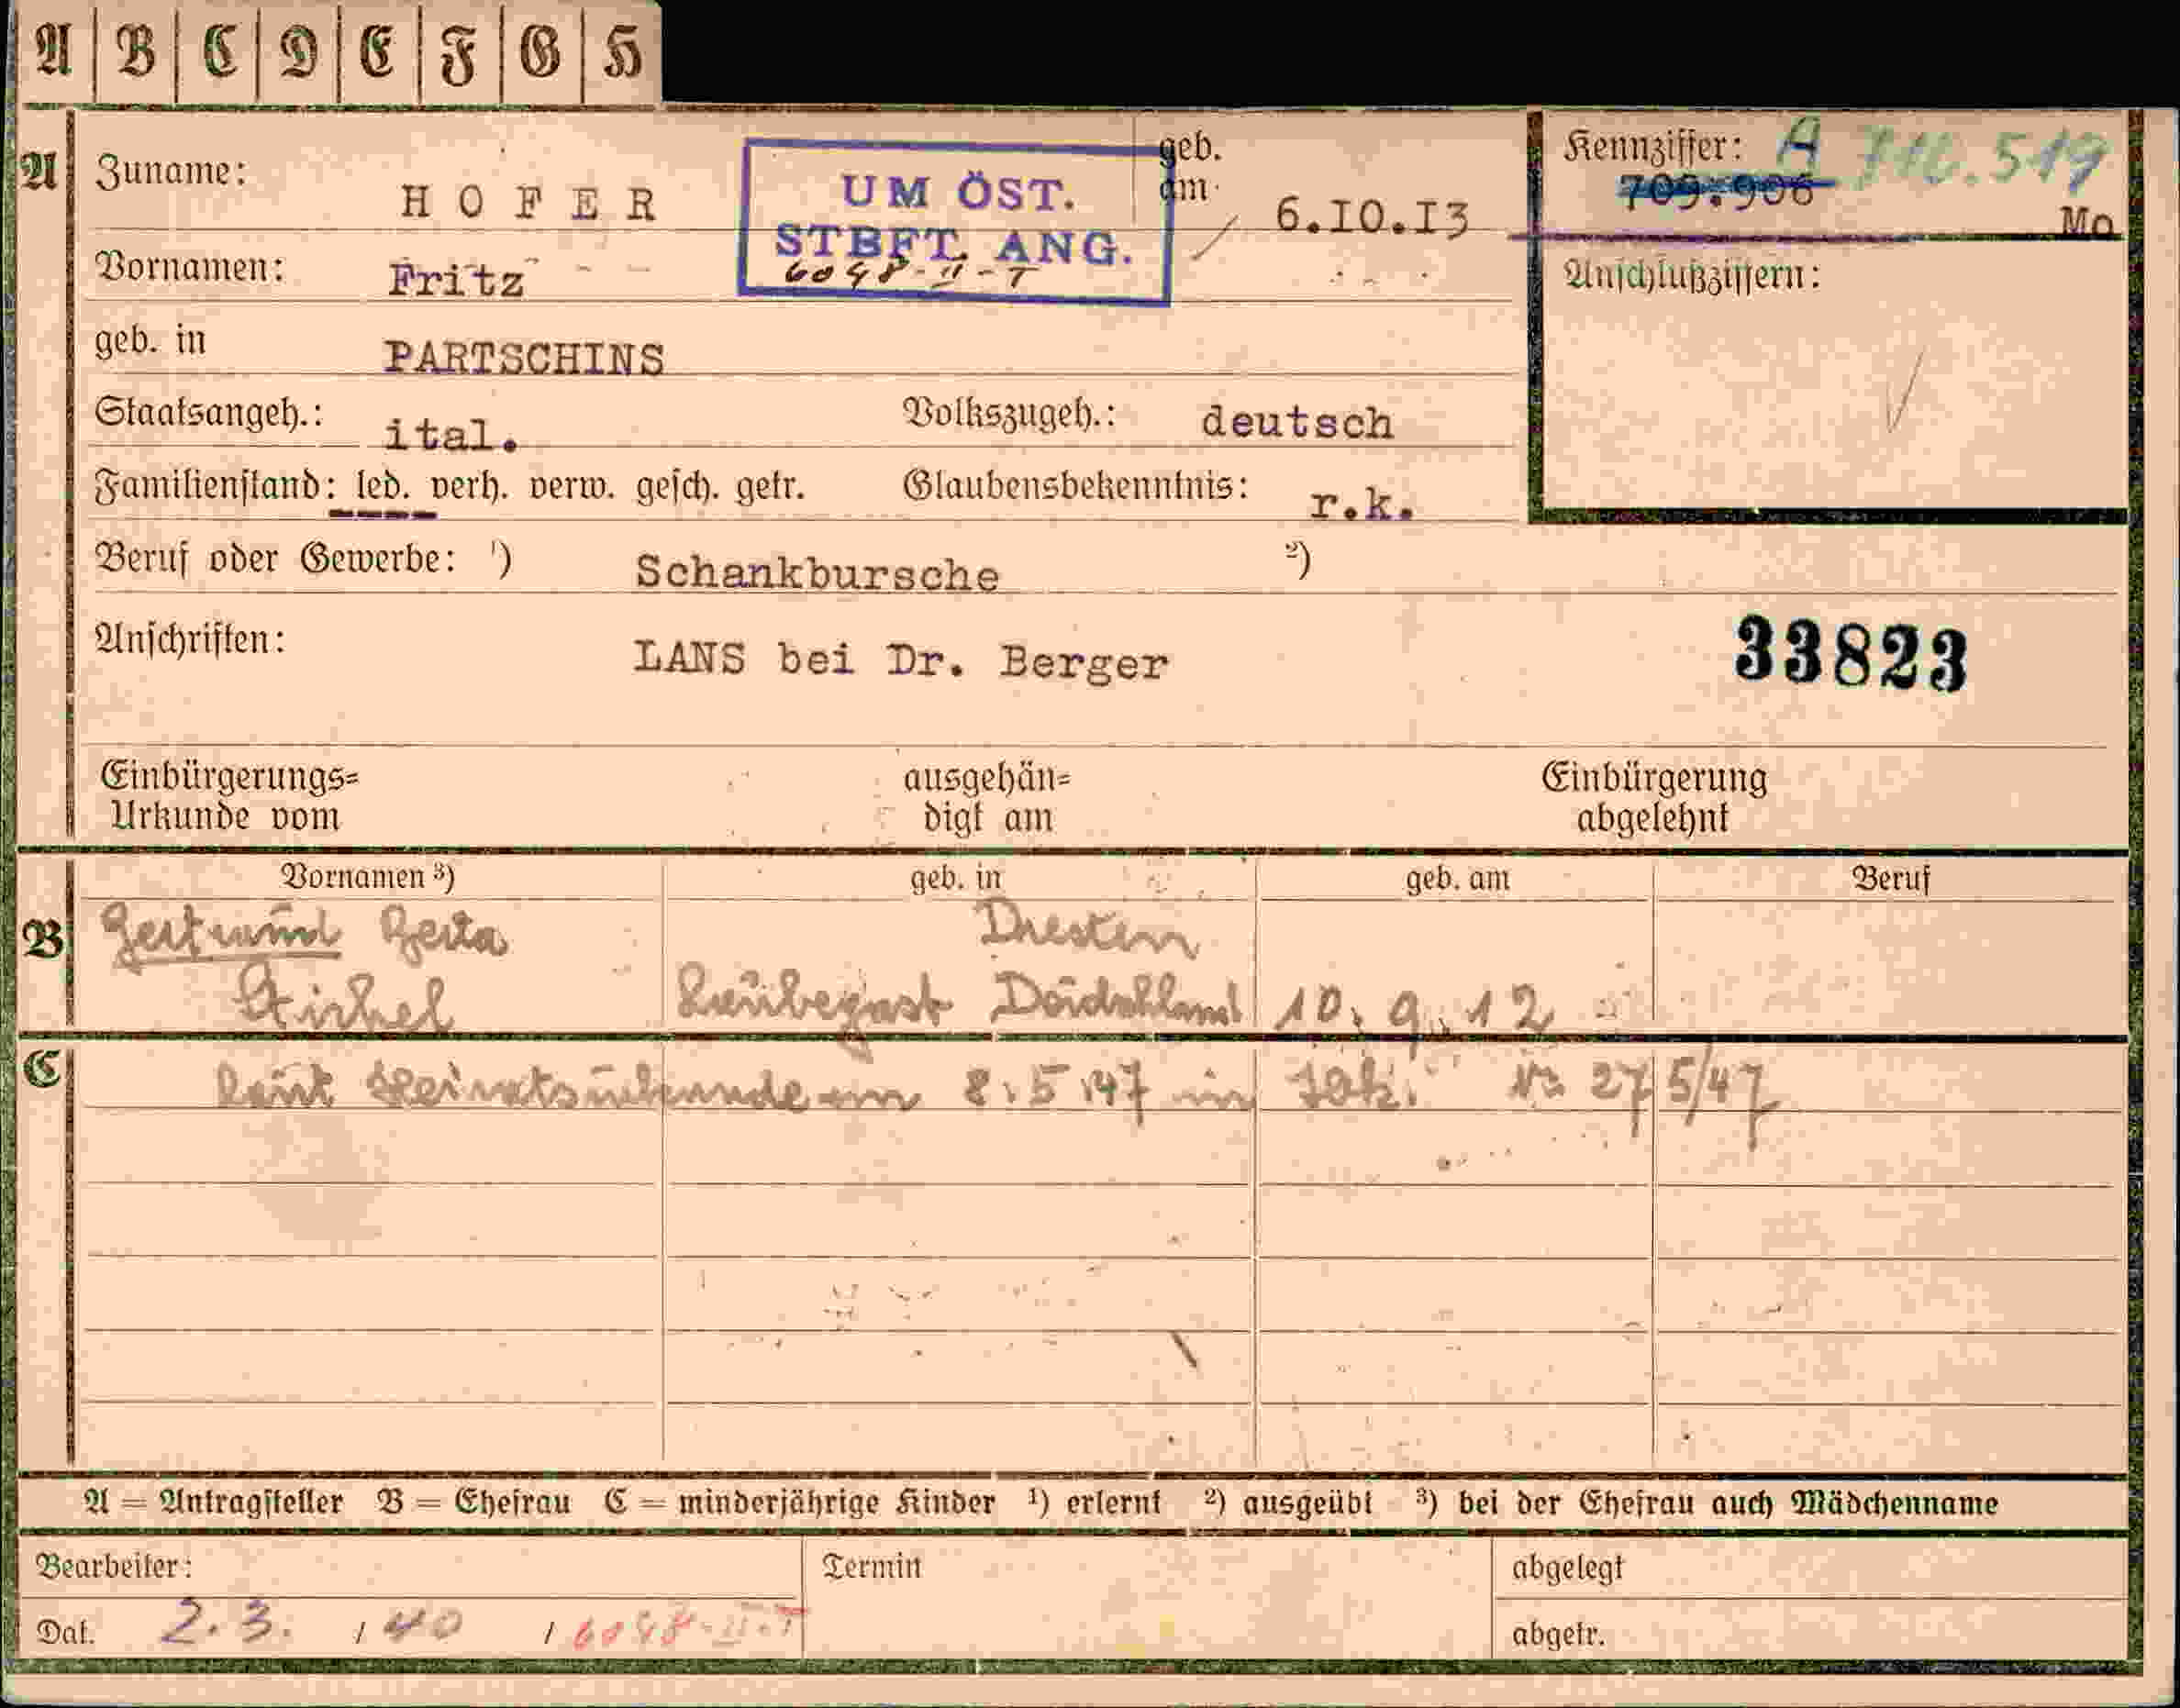 A B C D E F G H
A Zuname: HOFER
UM ÖST.
STBFT. ANG.
6048-II-T
geb. am 6.10.13
Kennziffer: A 310.519
709.906
Mo
Vornamen: Fritz
Anschlußziffern:
geb. in PARTSCHINS
Staatsangeh.: ital. Volkszugeh.: deutsch
Familienstand: led. verh. verw. gesch. getr. Glaubensbekenntnis: r.k.
Beruf oder Gewerbe: ¹) Schankbursche ²)
Anschriften: LANS bei Dr. Berger
33823
Einbürgerungs= ausgehän= Einbürgerung
Urkunde vom digt am abgelehnt
Vornamen ³) geb. in geb. am Beruf
B Gertraud Dresden
Leubegast 10.9.12
C Laut Heiratsurkunde am 8.5.47 in Nr 275/47
A = Antragsteller B = Ehefrau C = minderjährige Kinder ¹) erlernt ²) ausgeübt ³) bei der Ehefrau auch Mädchenname
Bearbeiter: Termin abgelegt
Dat. 2.3. / 40 / 6048-II-T abgetr.